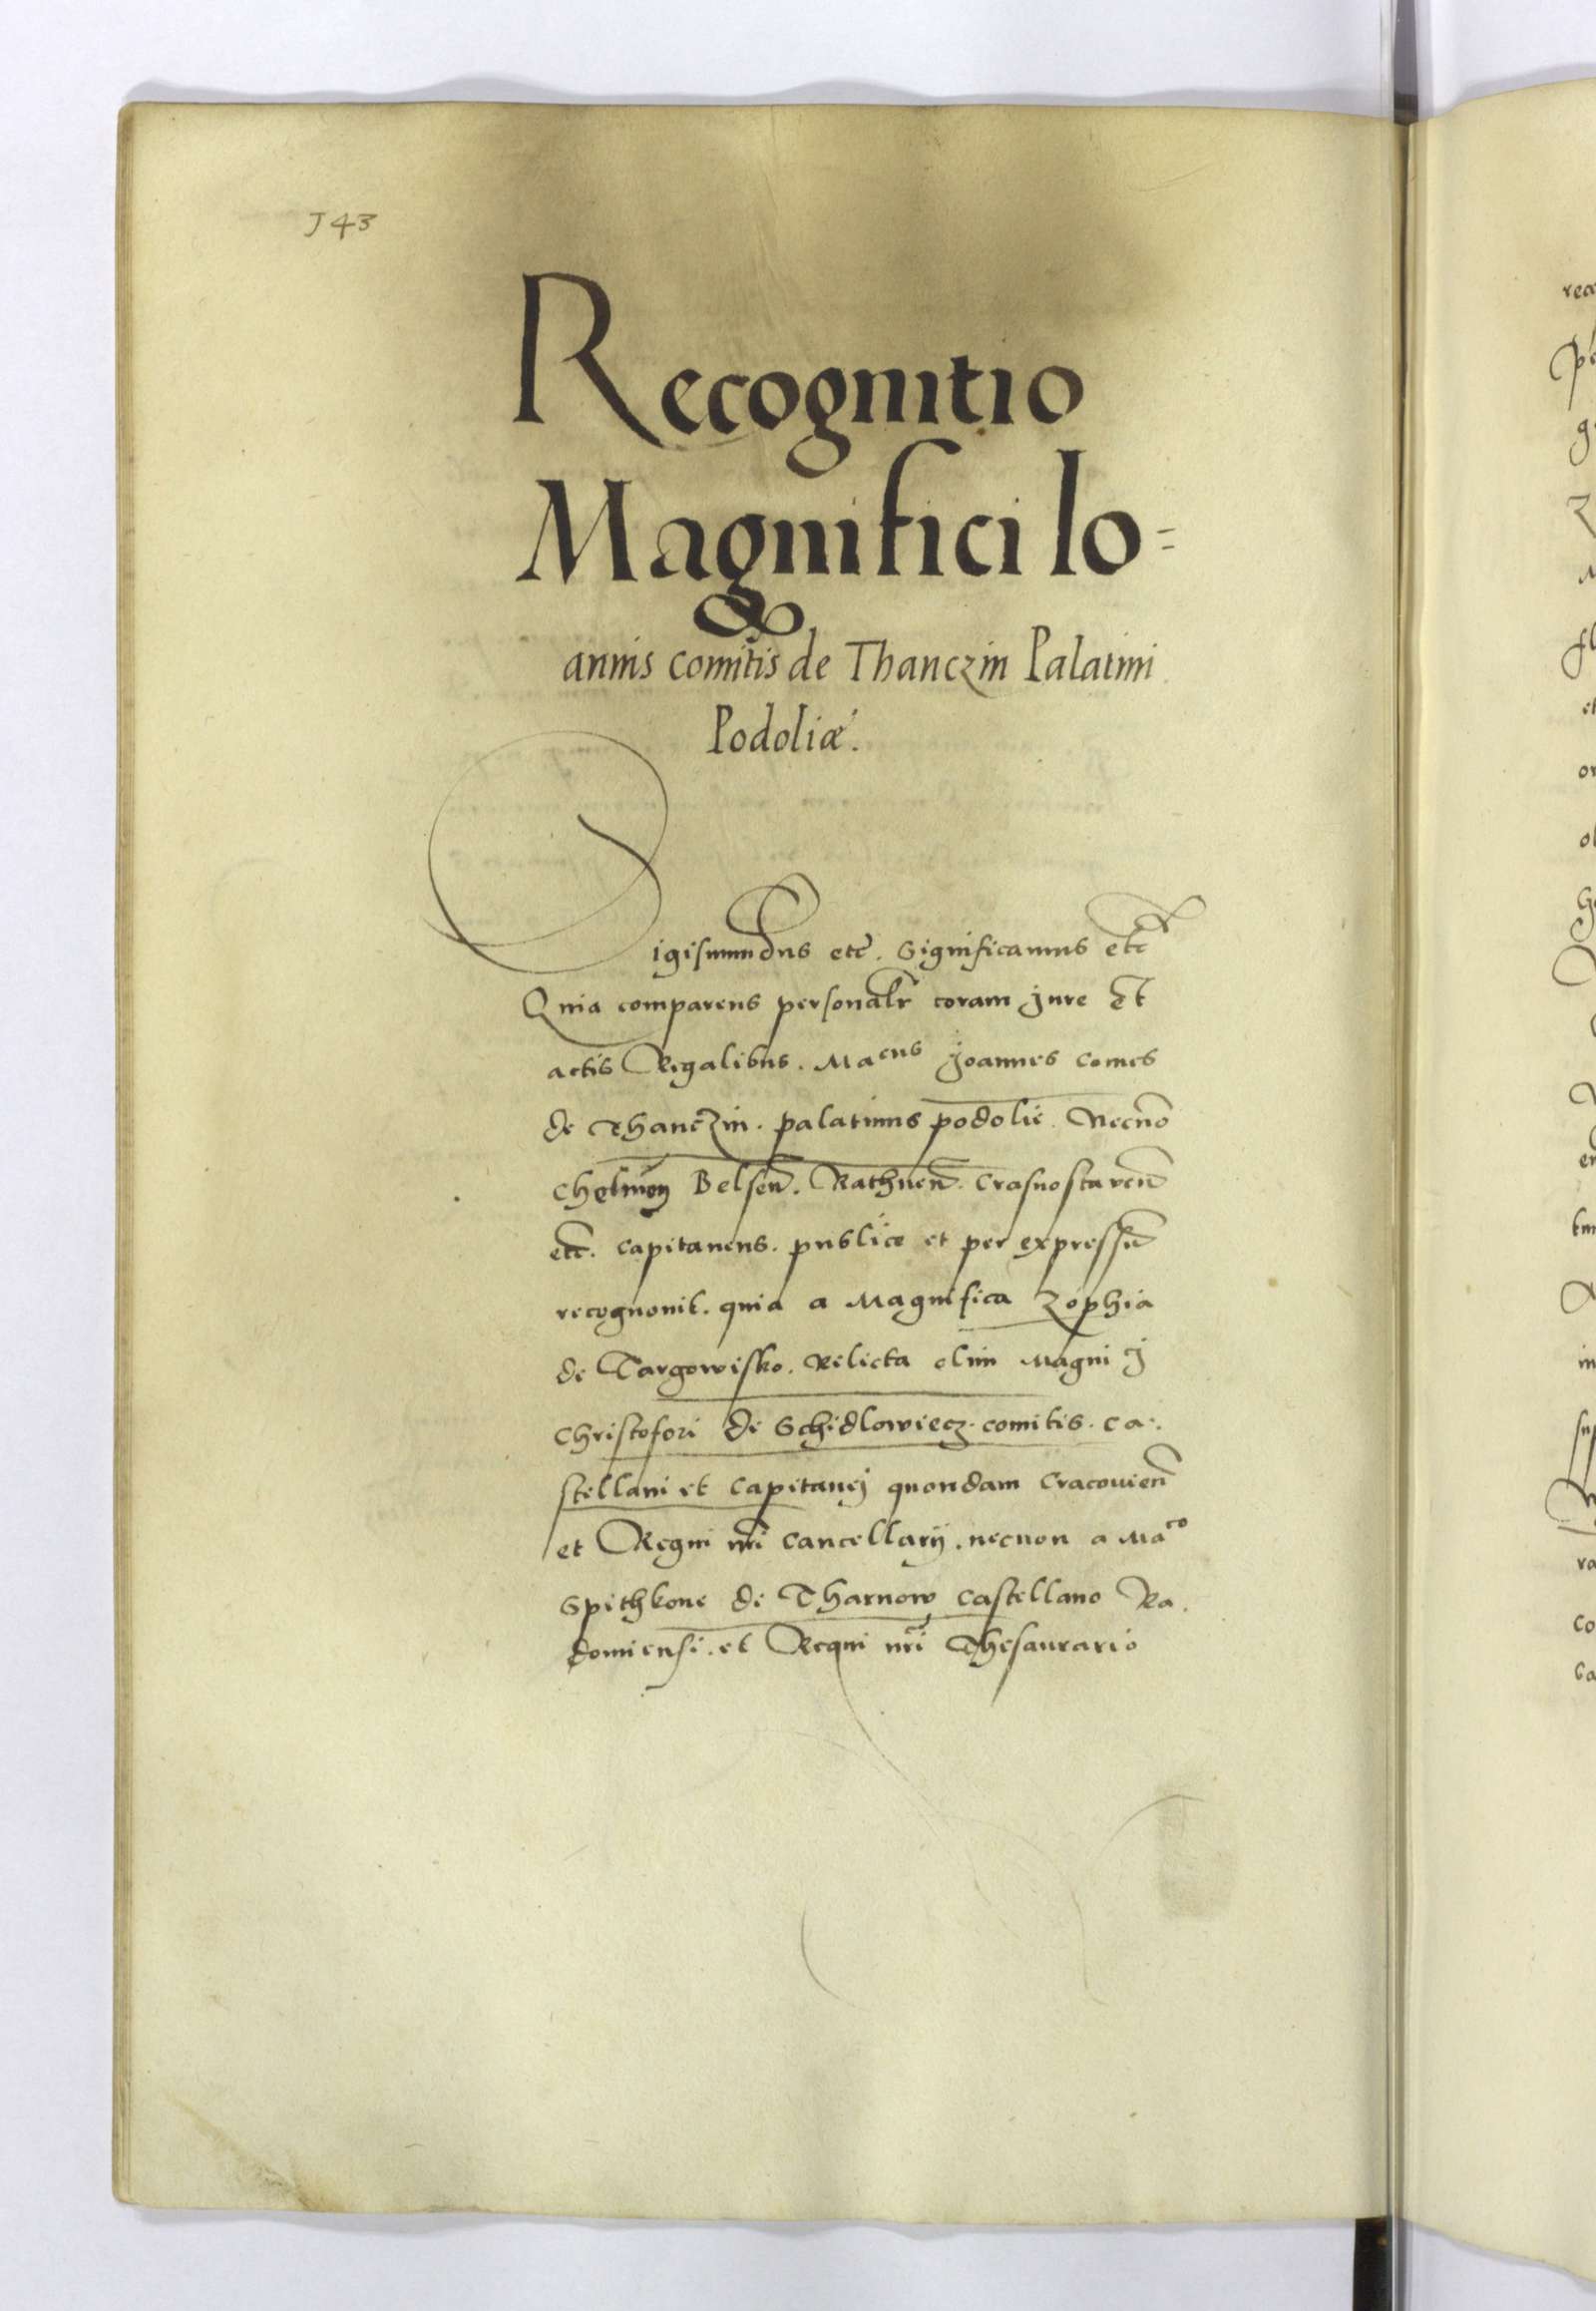 J43
Recognitio
Magnifici Io=
annis comitis de Thanczin Palatini
Podoliæ.
Sigismundus etc. Significamus etc
Quia comparens personalr coram jure Et
actis Regalibus. Macus Joannes comes
de Thanczin. palatinus podolie. Necno
chelmen Belsen. Rathnen. Crasnostaven
etc. capitaneus. publice et per expressu
recognouit. quia a Magnifica Zophia
de Targowisko. Relicta olim Magnici
Christofori de Schidlowiecz. comitis. ca:
stellani et capitanej quondam Cracouien
et Regni nri cancellarij. necnon a Maco
Spithkone de Tharnow castellano Ra.
domiensi. et Regni nri Thesaurario